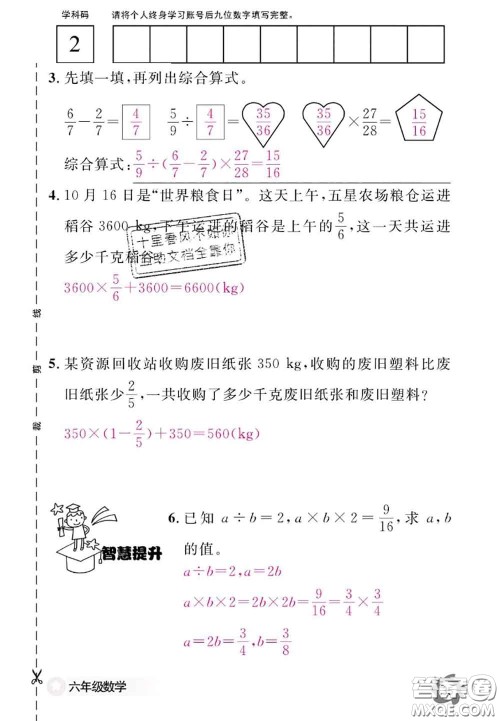 学科码 请将个人终身学习账号后九位数字填写完整。
2
3. 先填一填,再列出综合算式。
6/7-2/7=4/7 5/9÷4/7=35/36 35/36×27/28=15/16
综合算式:5/9÷(6/7-2/7)×27/28=15/16
4. 10 月 16 日是“世界粮食日”。这天上午,五星农场粮仓运进
稻谷 3600 kg,下午运进的稻谷是上午的5/6,这一天共运进
多少千克稻谷?
十里春风不如你
三帆文档全靠你
3600×5/6+3600=6600(kg)
5. 某资源回收站收购废旧纸张 350 kg,收购的废旧塑料比废
旧纸张少2/5,一共收购了多少千克废旧纸张和废旧塑料?
350×(1-2/5)+350=560(kg)
智慧提升
6. 已知 a÷b=2,a×b×2=9/16,求 a,b
的值。
a÷b=2,a=2b
a×b×2=2b×2b=9/16=3/4×3/4
a=2b=3/4,b=3/8
裁 剪 线
六年级数学
答案圈
MXQE.COM